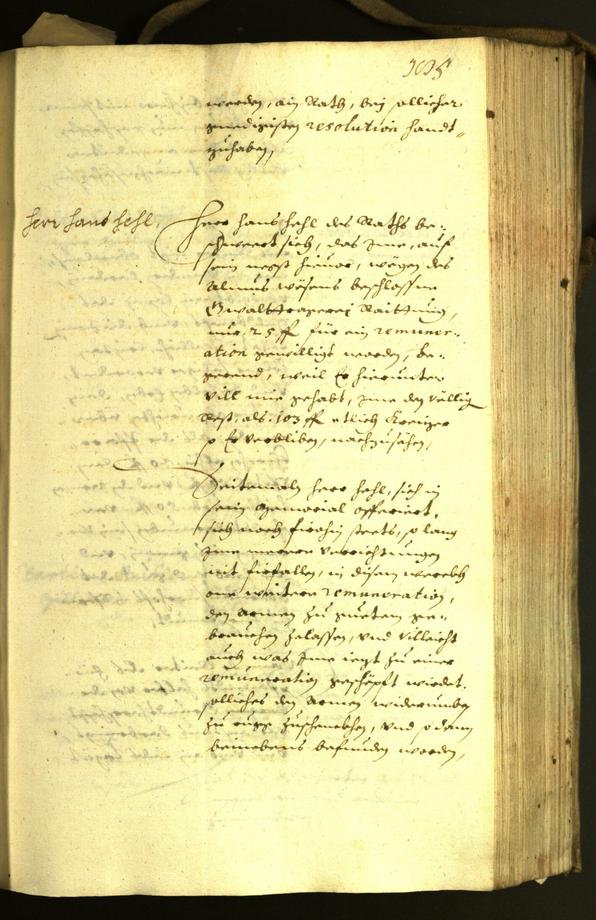 werden, ain Rath, bey sollicher
gnedigisten resolution handt-
zuhaben,
Herr Hans Hehl.
Herr Hans Hehl des Raths be-
schwerdt sich, das Ime, auf
sein negst hieuor, wegen des
Almus wesens beschlossne
Gwalttragerej Raittung,
nur 25 fl für ein remuner-
ation gewilligt worden, be-
gerend, weil Er hierunter
vill mie gehabt, Ime den völlig
Rest, als 103 fl etlich Kreizer
so Er verbliben, nachzusehen,
Seitemaln herr Hehl, sich in
sein memorial offeriert,
sich noch firohin stets, so lang
Ime merere verrichtungen
nit firfallen, in disem werckh
one weitere remuneration,
den Armen zu guetem ge-
brauchen zelassen, vnd villeicht
auch was Ime iezt zu einer
remuneration geschöpft wirdet,
solliches den Armen widerumben
zu nuz zuschenckhen, vnd sodann
beinebens befunden worden,